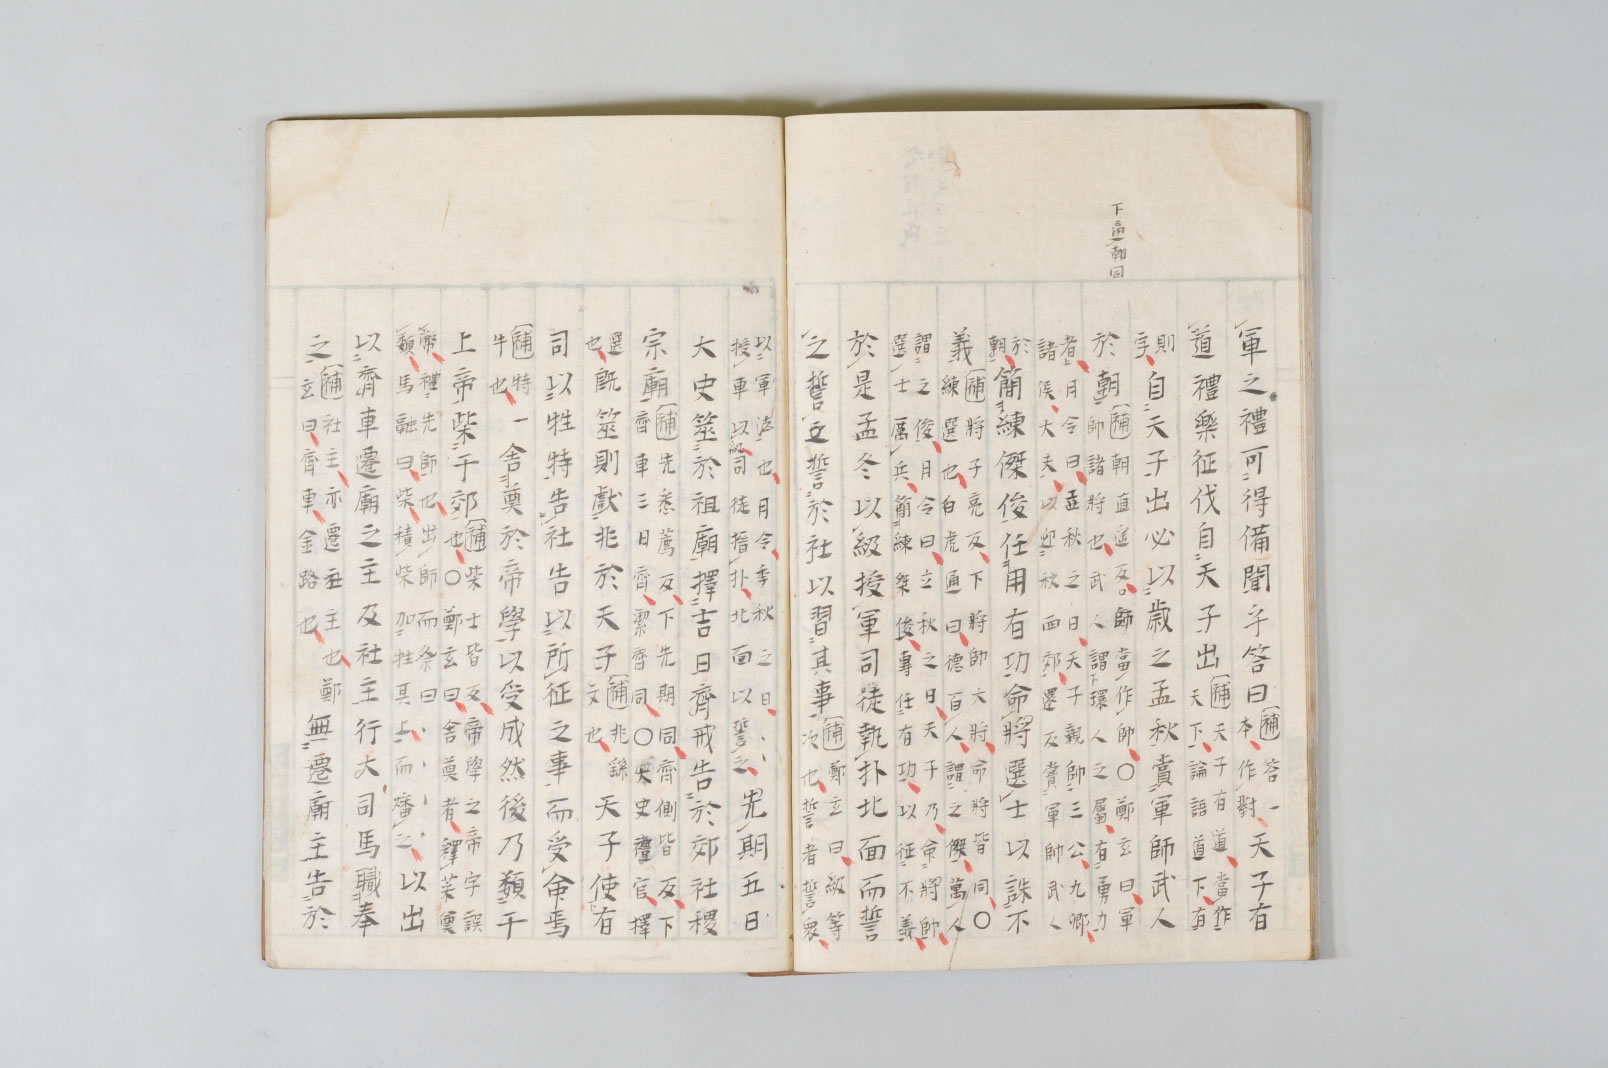 下當朝同
軍之禮可得備聞乎答曰
補答一
本作對
天子有
道禮樂征伐自天子出
補天子有道當作
天下論語道下有
則
字
自天子出必以歳之孟秋賞軍師武人
於朝
補朝直遥反師當作帥○鄭玄曰軍
帥諸將也武人謂環人之屬有勇力
者月令曰孟秋之日天子親帥三公九卿
諸侯大夫以迎秋西郊還反賞軍帥武人
於
朝
簡練傑俊任用有功命將選士以誅不
義
補將子亮反下將帥大將命將皆同○
練選也白虎通曰德百人謂之傑萬人
謂之俊月令曰立秋之日天子乃命將帥
選士厲兵簡練桀俊專任有功以征不義
於是孟冬以級授軍司徒執扑北面而誓
之誓立誓於社以習其事
補鄭玄曰級等
次也誓者誓衆
以軍法也月令季秋之日
授車以級司徒搢扑北面以誓之
先期五日
大史筮於祖廟擇吉日齊戒告於郊社稷
宗廟
補先悉薦反下先期同齊側皆反下
齊車三日齊潔齊同○大史禮官擇
選
也
既筮則獻兆於天子
補兆繇
文也
天子使有
司以牲特告社告以所征之事而受命焉
補特
牛也
一舍奠於帝學以受成然後乃類于
上帝柴于郊
補柴士皆反帝學之帝字誤
也○鄭玄曰舍奠者釋菜奠
幣禮先師也出師而祭曰
類馬融曰柴積柴加牲其上而燔之
以出
以齊車遷廟之主及社主行大司馬職奉
之
補社主亦遷主也鄭
玄曰齊車金路也
無遷廟主告於